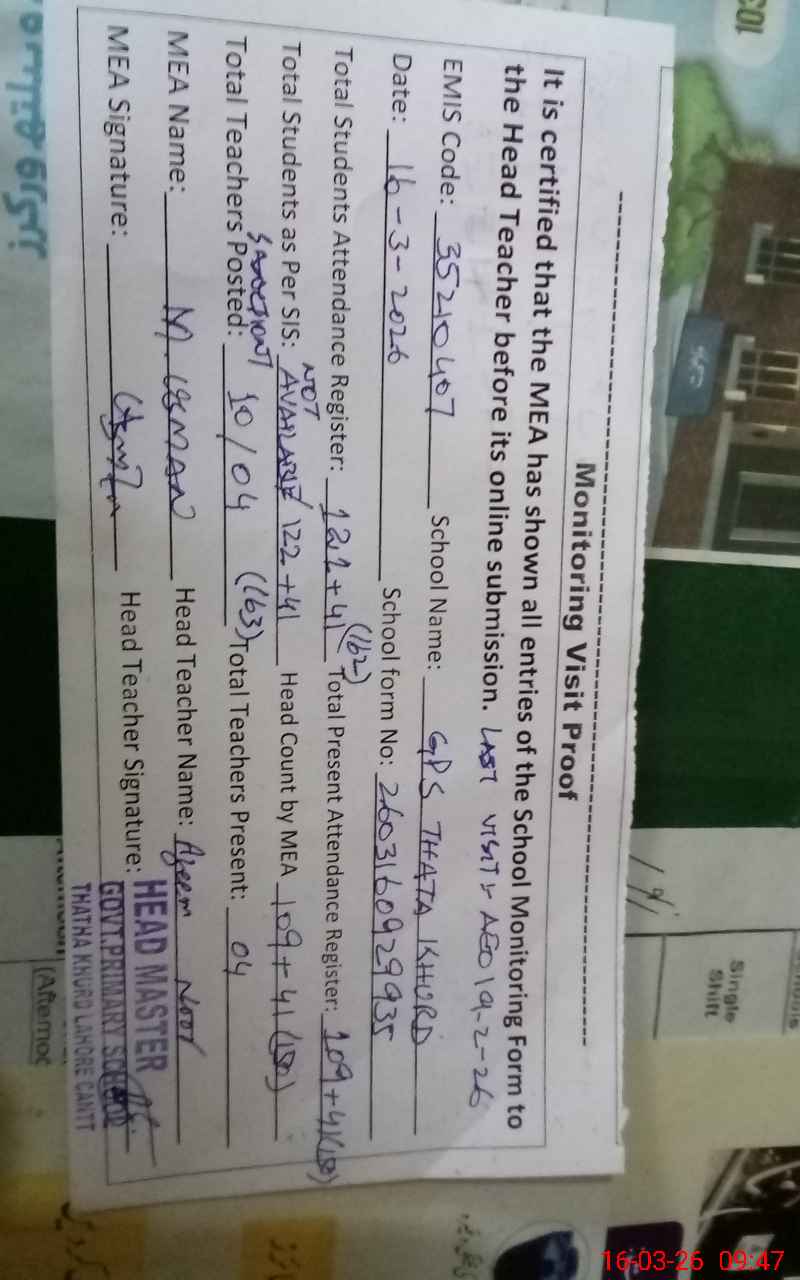 Monitoring Visit Proof
It is certified that the MEA has shown all entries of the School Monitoring Form to
the Head Teacher before its online submission. LAST VISIT AEO 19-2-26
EMIS Code: 35210407 School Name: GPS THATA KHURD
Date: 16-3-2026 School form No: 2603160929935
Total Students Attendance Register: 121+41 (162) Total Present Attendance Register: 109+41 (150)
Total Students as Per SIS: NOT AVAILABLE / 122+41 (163) Head Count by MEA 109+41 (150)
Total Teachers Posted: SANCTIONT 10/04 Total Teachers Present: 04
MEA Name: M. USMAN Head Teacher Name: Azeem Noor
MEA Signature: Usman Head Teacher Signature:
HEAD MASTER
GOVT.PRIMARY SCHOOL
THATHA KHURD LAHORE CANTT
Single
Shift
(Afternoo
16-03-26 09:47